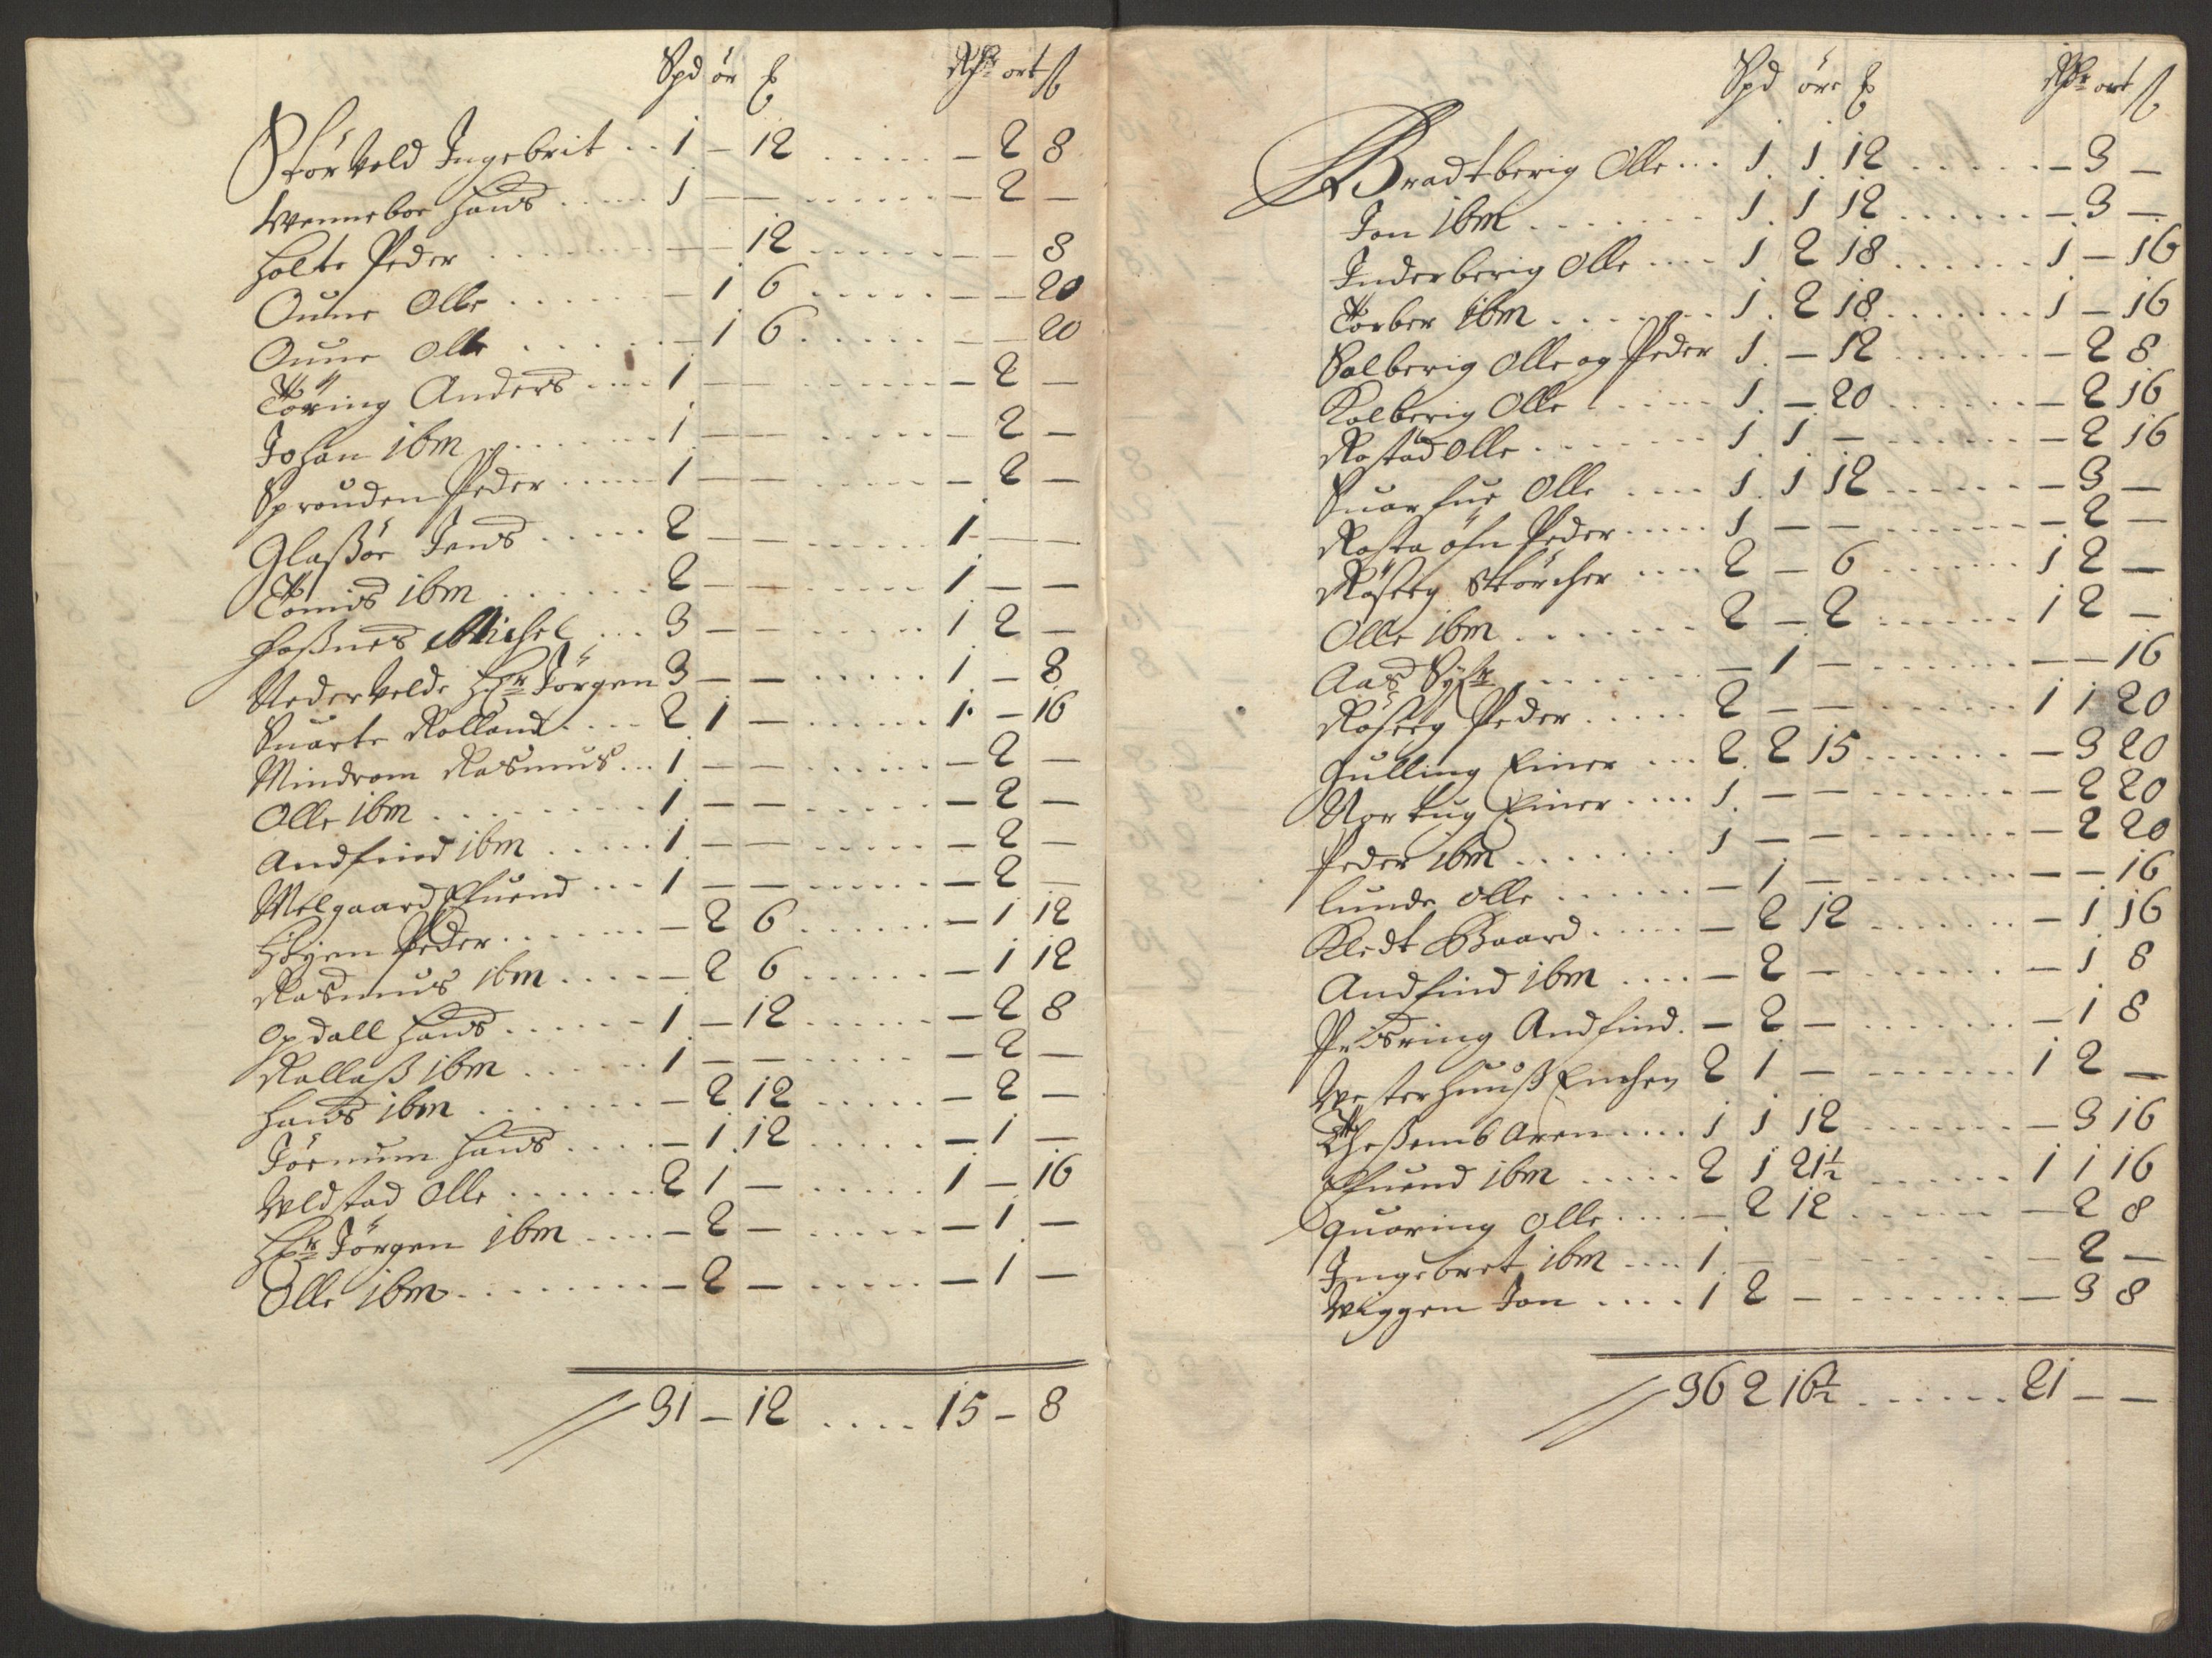 Spd ör ℔ Rdr ort ß
Störveld Ingebrit .. 1 – 12 ..... – 2 8
Wenneboe Hans ..... 1 – – ...... – 2 –
Holte Peder ...... – – 12 ...... – – 8
Oune Olle ...... – 1 6 ..... – – 20
Oune Olle ..... – 1 6 ..... – – 20
Töring Anders .... 1 – – ...... – 2 –
Johan ibm ....... 1 – – ..... – 2 –
Sprouden Peder ..... 1 – – ..... – 2 –
Glaßöe Jens ..... 2 – – ...... 1 – –
Tönnis ibm ...... 2 – – ...... 1 – –
Hoßnes Michel ... 3 – – ..... 1 2 –
Nedervelde Hr Jörgen 3 – – ..... 1 – 8
Suarte Rolland .... 2 1 – ...... 1 – 16
Mindrom Rasmus ... 1 – – ..... – 2 –
Olle ibm ........ 1 – – ..... – 2 –
Andfind ibm ..... 1 – – ..... – 2 –
Melgaard Efuend ... 1 – – ...... – 2 –
Skyen Peder ...... – 2 6 ...... – 1 12
Rasmus ibm .... – 2 6 ...... – 1 12
Opdall Hans ...... 1 – 12 ..... – 2 8
Rollaß ibm ...... 1 – – ..... – 2 –
Hans ibm ....... – 2 12 ..... – 2 –
Törnum Hans .... – 1 12 ..... – 1 –
Uldstad Olle ....... 2 1 – ..... 1 – 16
Hr Jörgen ibm .... – 2 – ..... – 1 –
Olle ibm ........ – 2 – ..... – 1 –
31 – 12 .... 15 – 8
Spd öre ℔ Rdr ort ß
Bradtberig Olle ... 1 1 12 ...... – 3 –
Jon ibm ....... 1 1 12 ...... – 3 –
Inderberig Olle .... 1 2 18 ...... 1 – 16
Torber ibm ....... 1 2 18 ....... 1 – 16
Solberig Olle og Peder 1 – 12 ...... – 2 8
Kolberig Olle ...... 1 – 20 ...... – 2 16
Rostad Olle ....... 1 1 – ...... – 2 16
Suorfue Olle .... 1 1 12 ...... – 3 –
Rosta öfn Peder ..... 1 – – ...... – 2 –
Röstey Störcher .... 2 – 6 ....... 1 2 –
Olle ibm ....... 2 – 2 ...... 1 2 –
Aas Sÿfr ........ – 1 – ....... – – 16
Röstey Peder ..... 2 – – ....... 1 1 20
Gulling Einer ... 2 2 15 ....... – 3 20
Vortug Einer .... 1 – – ....... – 2 20
Peder ibm ....... 1 – – ....... – 2 20
Lunde Olle ...... – 1 – ....... – – 16
Kledt Baard ..... – 2 12 ....... – 1 16
Andfind ibm .... – 2 – ...... – 1 8
Pedsring Andfind . – 2 – ....... – 1 8
Westerhuuß Enchen 2 1 – ....... 1 2 –
Theßemb Aren .... 1 1 12 ....... – 3 16
Efuend ibm ..... 2 1 21½ ...... 1 1 16
Quoring Olle .... – 2 12 ...... – 2 8
Ingebret ibm .... 1 – – ...... – 2 –
Wiggen Jon .... 1 2 – ....... – 3 8
36 2 16½ ...... 21 – –